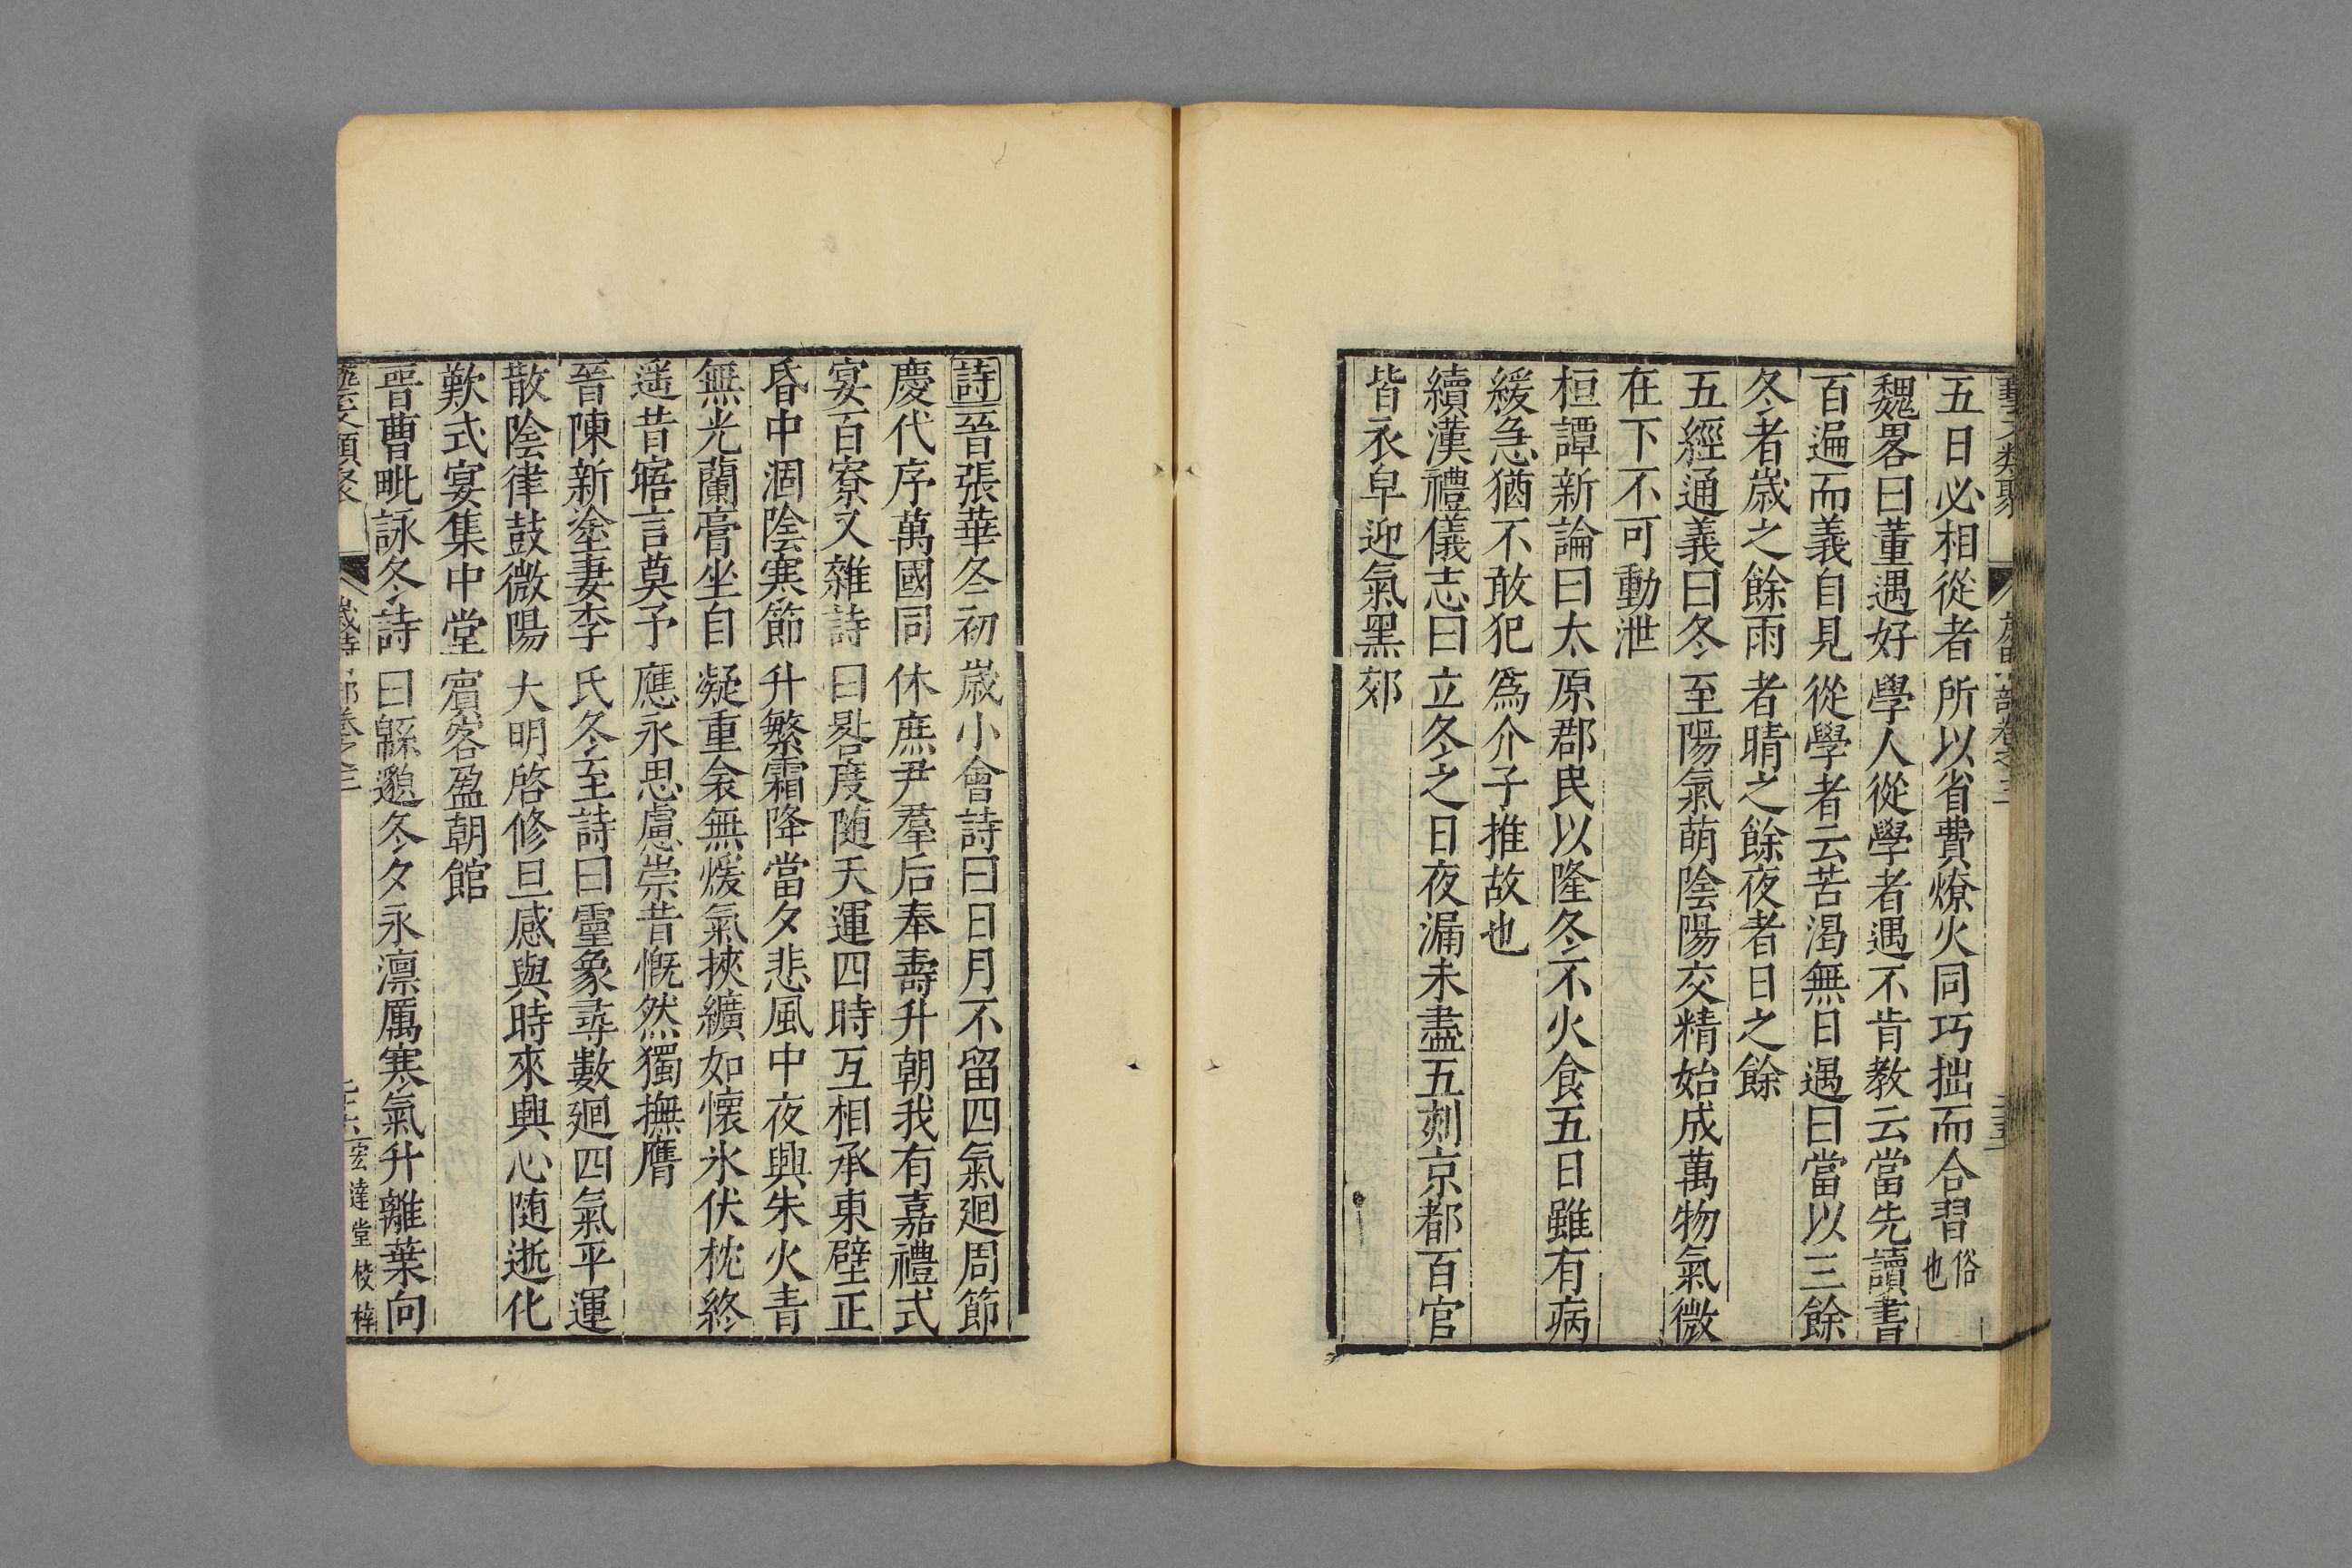 藝文類聚 歲時部卷之三 二十五
五日必相從者所以省費燎火同巧拙而合習俗也
魏畧曰董遇好學人從學者遇不肯教云當先讀書
百遍而義自見從學者云苦渴無日遇曰當以三餘
冬者歲之餘雨者晴之餘夜者日之餘
五經通義曰冬至陽氣萌陰陽交精始成萬物氣微
在下不可動泄
桓譚新論曰太原郡民以隆冬不火食五日雖有病
緩急猶不敢犯爲介子推故也
續漢禮儀志曰立冬之日夜漏未盡五刻京都百官
皆衣皁迎氣黑郊
詩晉張華冬初歲小會詩曰日月不留四氣廻周節
慶代序萬國同休庶尹羣后奉壽升朝我有嘉禮式
宴百寮又雜詩曰晷度随天運四時互相承東壁正
昏中涸陰寒節升繁霜降當夕悲風中夜興朱火青
無光蘭膏坐自凝重衾無煖氣挾纊如懷氷伏枕終
遥昔寤言莫予應永思慮崇昔慨然獨撫膺
晉陳新塗妻李氏冬至詩曰靈象尋數廻四氣平運
散陰律鼓微陽大明啓修旦感與時來興心随逝化
歎式宴集中堂賔客盈朝館
晉曹毗詠冬詩曰緜邈冬夕永凛厲寒氣升離葉向
藝文類聚 歲時部卷之三 二十六 宏達堂校梓